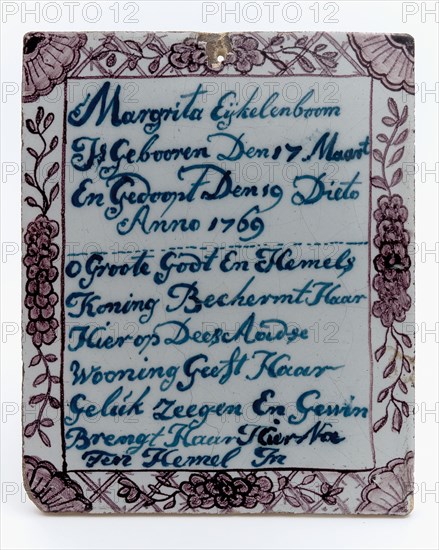 PHOTO12 PHOTO12 PHOTO12
Margrita Eÿkelenboom
Is Gebooren Den 17 Maart
En Gedoopt Den 19 Dieto
Anno 1769
O Groote Godt En Hemels
Koning Bechermt Haar
Hier op Deesch Aadse
Wooning Geeft Haar
Gelük Zeegen En Gewin
Brengt Haar Hier Nae
Ten Hemel In